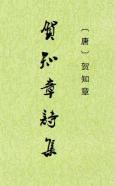 贺知章詩集
〔唐〕贺知章